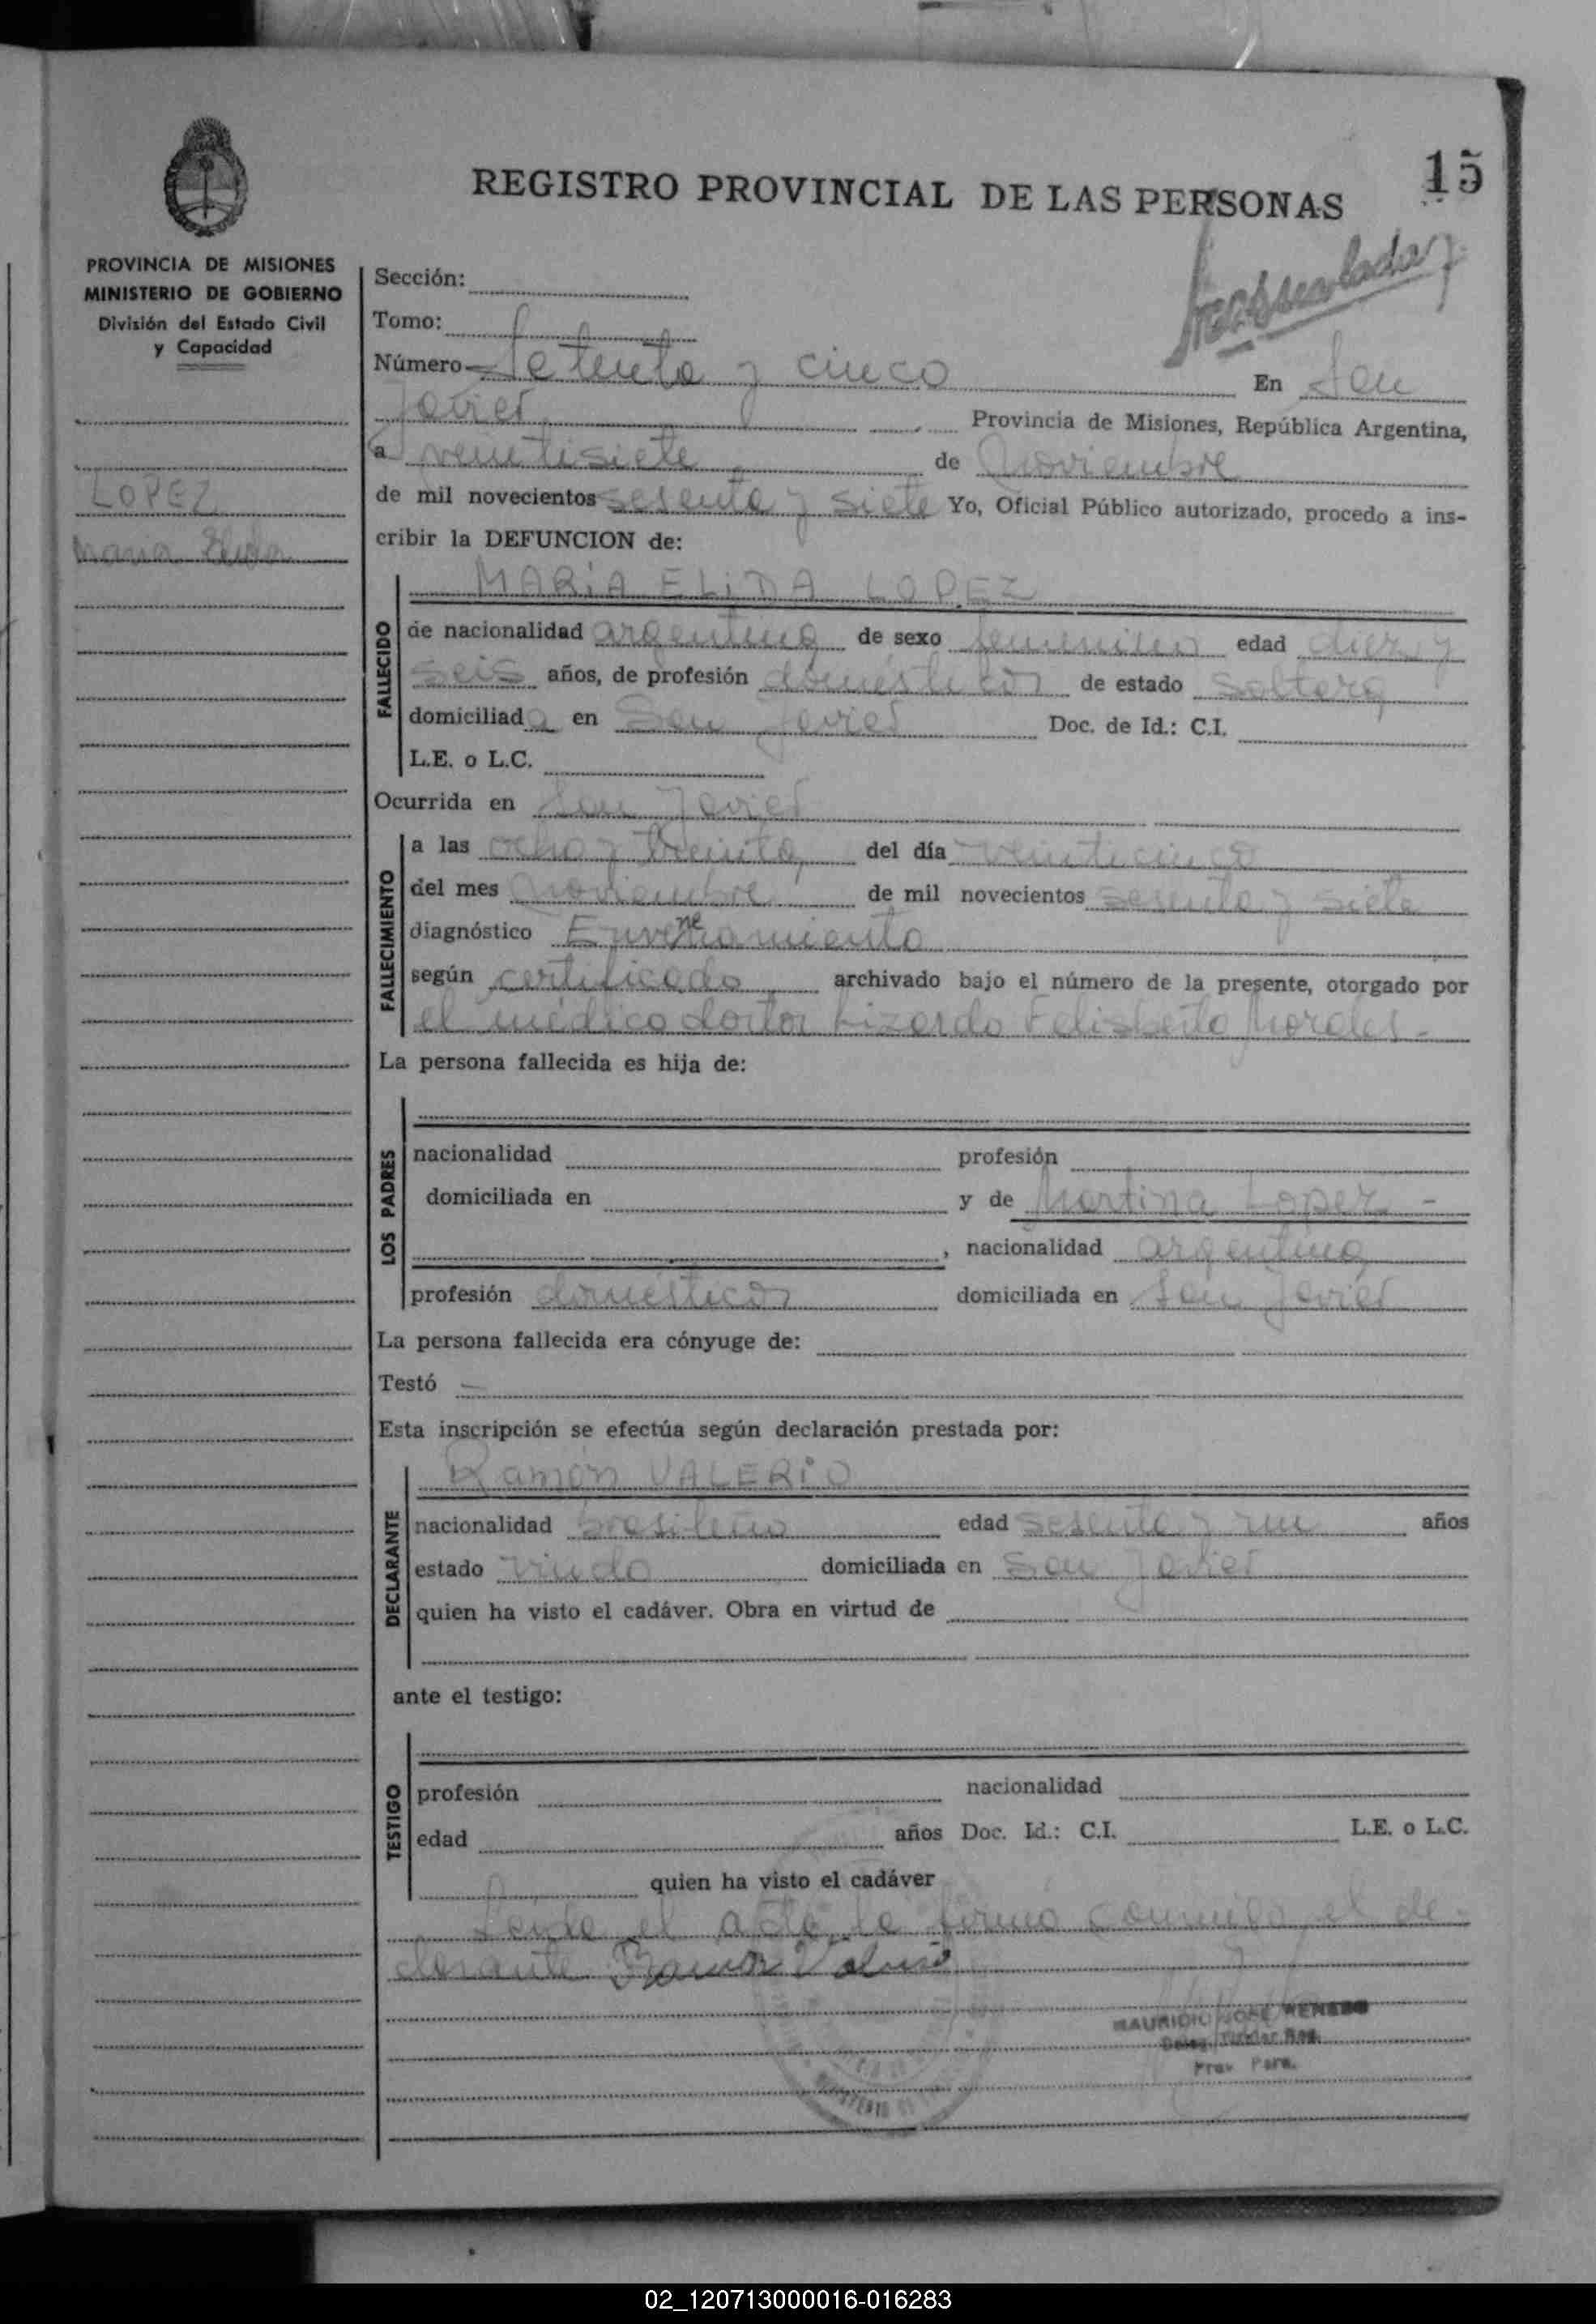 15
REGISTRO PROVINCIAL DE LAS PERSONAS
PROVINCIA DE MISIONES
MINISTERIO DE GOBIERNO
División del Estado Civil
y Capacidad
LOPEZ
Maria Elida
Sección:
Tomo:
Número Setenta y cinco En San
Javier Provincia de Misiones, República Argentina,
a veintisiete de Noviembre
de mil novecientos sesenta y siete Yo, Oficial Público autorizado, procedo a ins-
cribir la DEFUNCION de:
MARIA ELIDA LOPEZ
FALLECIDO
de nacionalidad argentina de sexo femenino edad diez y
seis años, de profesión domésticos de estado soltera
domiciliada en San Javier Doc. de Id.: C.I.
L.E. o L.C.
Ocurrida en San Javier
FALLECIMIENTO
a las ocho y treinta, del día veinticinco
del mes Noviembre de mil novecientos sesenta y siete
diagnóstico Envenenamiento
según certificado archivado bajo el número de la presente, otorgado por
el médico doctor Lizardo Felisberto Morales-
La persona fallecida es hija de:
LOS PADRES
nacionalidad profesión
domiciliada en y de Martina Lopez -
, nacionalidad argentina
profesión domésticos domiciliada en San Javier
La persona fallecida era cónyuge de:
Testó -
Esta inscripción se efectúa según declaración prestada por:
Ramón VALERIO
DECLARANTE
nacionalidad brasileño edad sesenta y un años
estado viudo domiciliada en San Javier
quien ha visto el cadáver. Obra en virtud de
ante el testigo:
TESTIGO
profesión nacionalidad
edad años Doc. Id.: C.I. L.E. o L.C.
quien ha visto el cadáver
Leída el acta, la firma conmigo el de-
clarante. Ramon Valerio
MAURICIO JOSE
Prov. Pers.
02_120713000016-016283